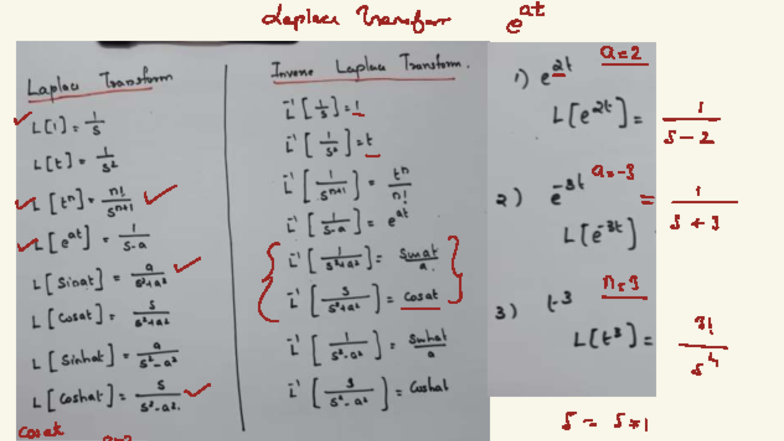 Laplace Transform e^at
Laplace Transform
L[1] = 1/s
L[t] = 1/s²
L[tⁿ] = n!/sⁿ⁺¹
L[e^at] = 1/s-a
L[Sinat] = a/s²+a²
L[Cosat] = s/s²+a²
L[Sinhat] = a/s²-a²
L[Coshat] = s/s²-a².
Cosat
Inverse Laplace Transform.
L⁻¹[1/s] = 1
L⁻¹[1/s²] = t
L⁻¹[1/sⁿ⁺¹] = tⁿ/n!
L⁻¹[1/s-a] = e^at
L⁻¹[1/s²+a²] = Sinat/a.
L⁻¹[s/s²+a²] = Cosat
L⁻¹[1/s²-a²] = Sinhat/a
L⁻¹[s/s²-a²] = Coshat
a=2
1) e^2t
L[e^2t] = 1/s-2
a=-3
2) e^-3t
L[e^-3t] = 1/s+3
n=3
3) t-3
L[t³] = 3!/s⁴